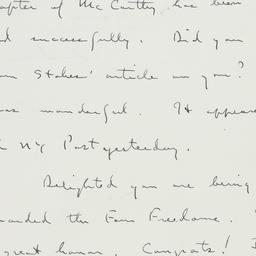 chapter of McCarthy has been
successfully. Did you
Stokes' article on you?
was wonderful. It appeared
N Y Post yesterday.
Delighted you are being
awarded the Four Freedoms.
great honor. Congrats!